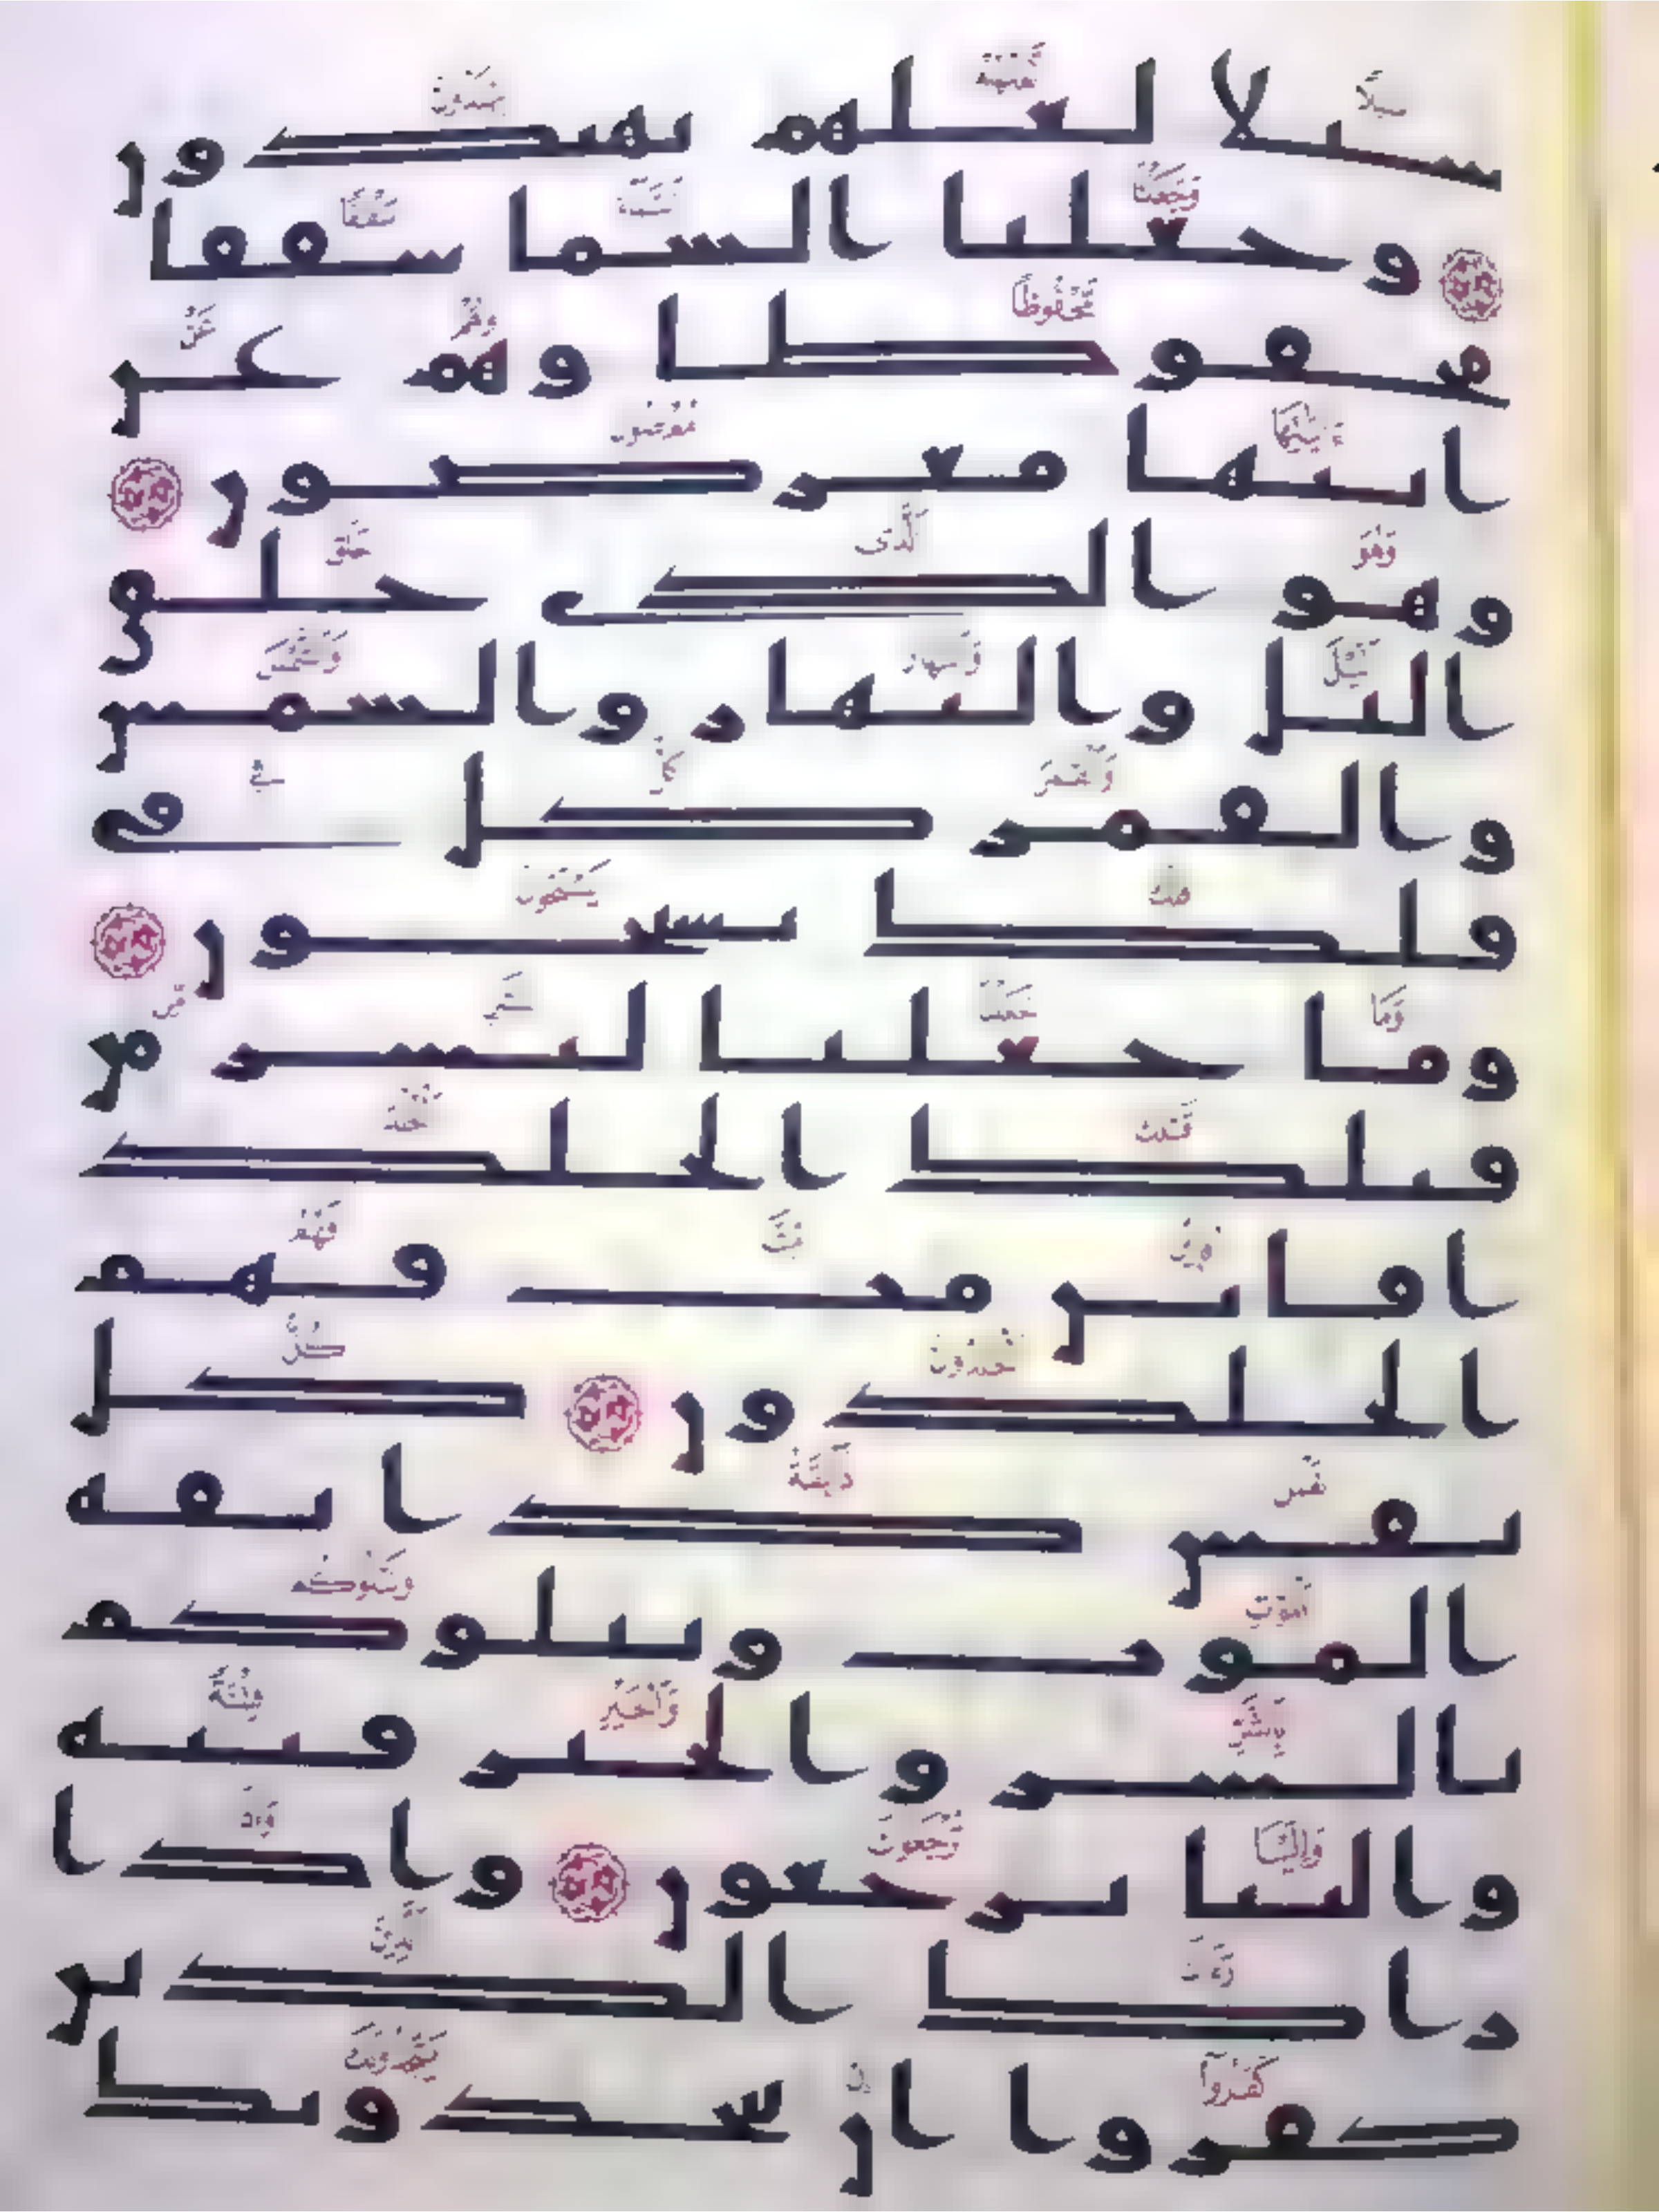 سبلا لعلهم يهتدون
وجعلنا السما سقفا
محفوظا وهم عن
ايتها معرضون
وهو الذي خلق
اليل والنهار والشمس
والقمر كل في
فلك يسبحون
وما جعلنا لبشر من
قبلك الخلد
افاين مت فهم
الخلدون كل
نفس ذايقة
الموت ونبلوكم
بالشر والخير فتنة
والينا ترجعون واذا
راك الذين
كفروا ان يتخذونك